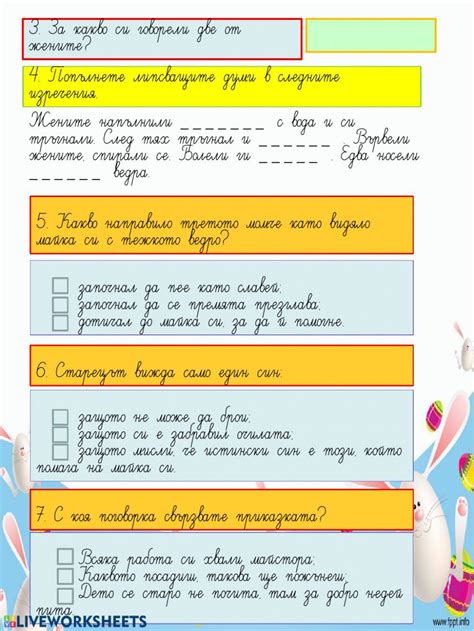 3. За какво си говорели две от
жените?
4. Попълнете липсващите думи в следните
изречения.
Жените напълнили _ _ _ _ _ _ _ с вода и си
тръгнали. След тях тръгнал и _ _ _ _ _ _ . Вървели
жените, спирали се. Болели ги _ _ _ _ _ . Едва носели
_ _ _ _ _ _ ведра.
5. Какво направило третото момче като видяло
майка си с тежкото ведро?
започнал да пее като славей;
започнал да се премята презглава;
дотичал до майка си, за да й помогне.
6. Старецът вижда само един син:
защото не може да брои;
защото си е забравил очилата;
защото мисли, че истински син е този, който
помага на майка си.
7. С коя поговорка свързвате приказката?
Всяка работа си хвали майстора;
Каквото посадиш, такова ще пожънеш;
Дето се старо не почита, там за добро недей
пита.
LIVEWORKSHEETS
www.tppt.info